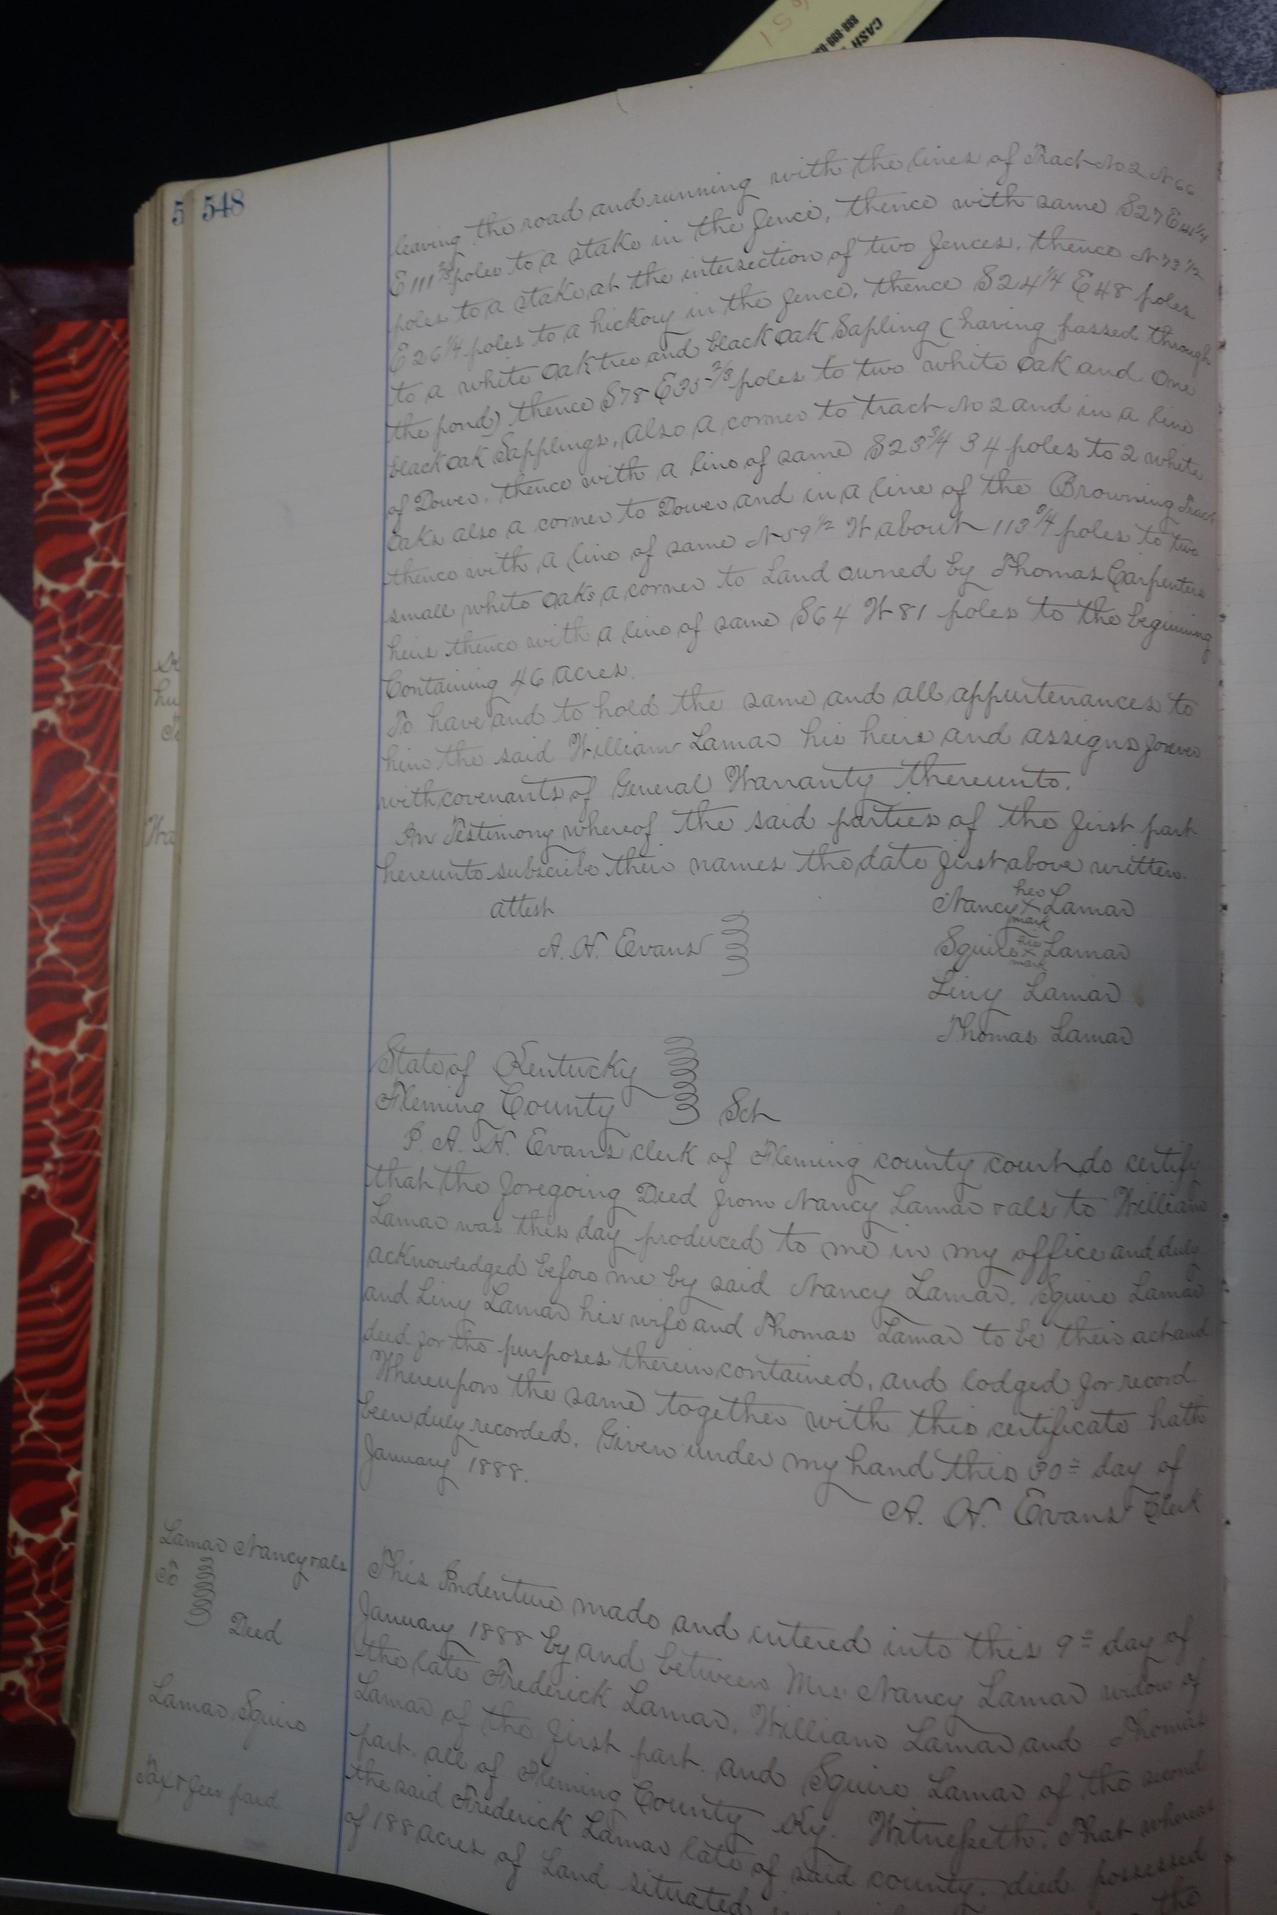 CASH
548
5
leaving the road and running with the lines of Tract No 2 N 66
E 111 3/8 poles to a stake in the fence, thence with same S 27 E
poles to a stake at the intersection of two fences, thence N 73 1/2
E 26 1/4 poles to a hickory in the fence, thence S 24 1/4 E 48 poles
to a white oak tree and black oak Sapling (having passed through
the pond) thence S 78 E poles to two white oak and one
black oak Sapplings, also a corner to tract No 2 and in a line
of Dower, thence with a line of same S 23 3/4 34 poles to 2 white
oaks also a corner to Dower and in a line of the Browning Tract
thence with a line of same N 59 1/2 W about 113 3/4 poles to two
small white oaks a corner to Land owned by Thomas Carpenters
heirs thence with a line of same S 64 W 81 poles to the begining
Containing 46 acres.
To have and to hold the same and all appurtenances to
him the said William Lamar his heirs and assigns forever
with covenants of General Warranty thereunto.
In Testimony whereof the said parties of the first part
hereunto subscribe their names the date first above written.
attest
A. H. Evans
Nancy her X mark Lamar
Squire his X mark Lamar
Liny Lamar
Thomas Lamar
State of Kentucky
Fleming County Sct
I. A. H. Evans clerk of Fleming county court do certify
that the foregoing Deed from Nancy Lamar &als to William
Lamar was this day produced to me in my office and duly
acknowledged before me by said Nancy Lamar, Squire Lamar
and Liny Lamar his wife and Thomas Lamar to be their act and
deed for the purposes therein contained, and lodged for record
Whereupon the same together with this certificate hath
been duly recorded. Given under my hand this 30th day of
January 1888.
A. H. Evans Clerk
Lamar Nancy &als
To
Deed
Lamar, Squire
Tax & fees paid
This Indenture made and entered into this 9th day of
January 1888 by and between Mrs. Nancy Lamar widow of
the late Frederick Lamar, William Lamar and Thomas
Lamar of the first part and Squire Lamar of the second
part, all of Fleming County Ky. Witnesseth: That whereas
the said Frederick Lamar late of said county, died possessed
of 188 acres of Land situated the